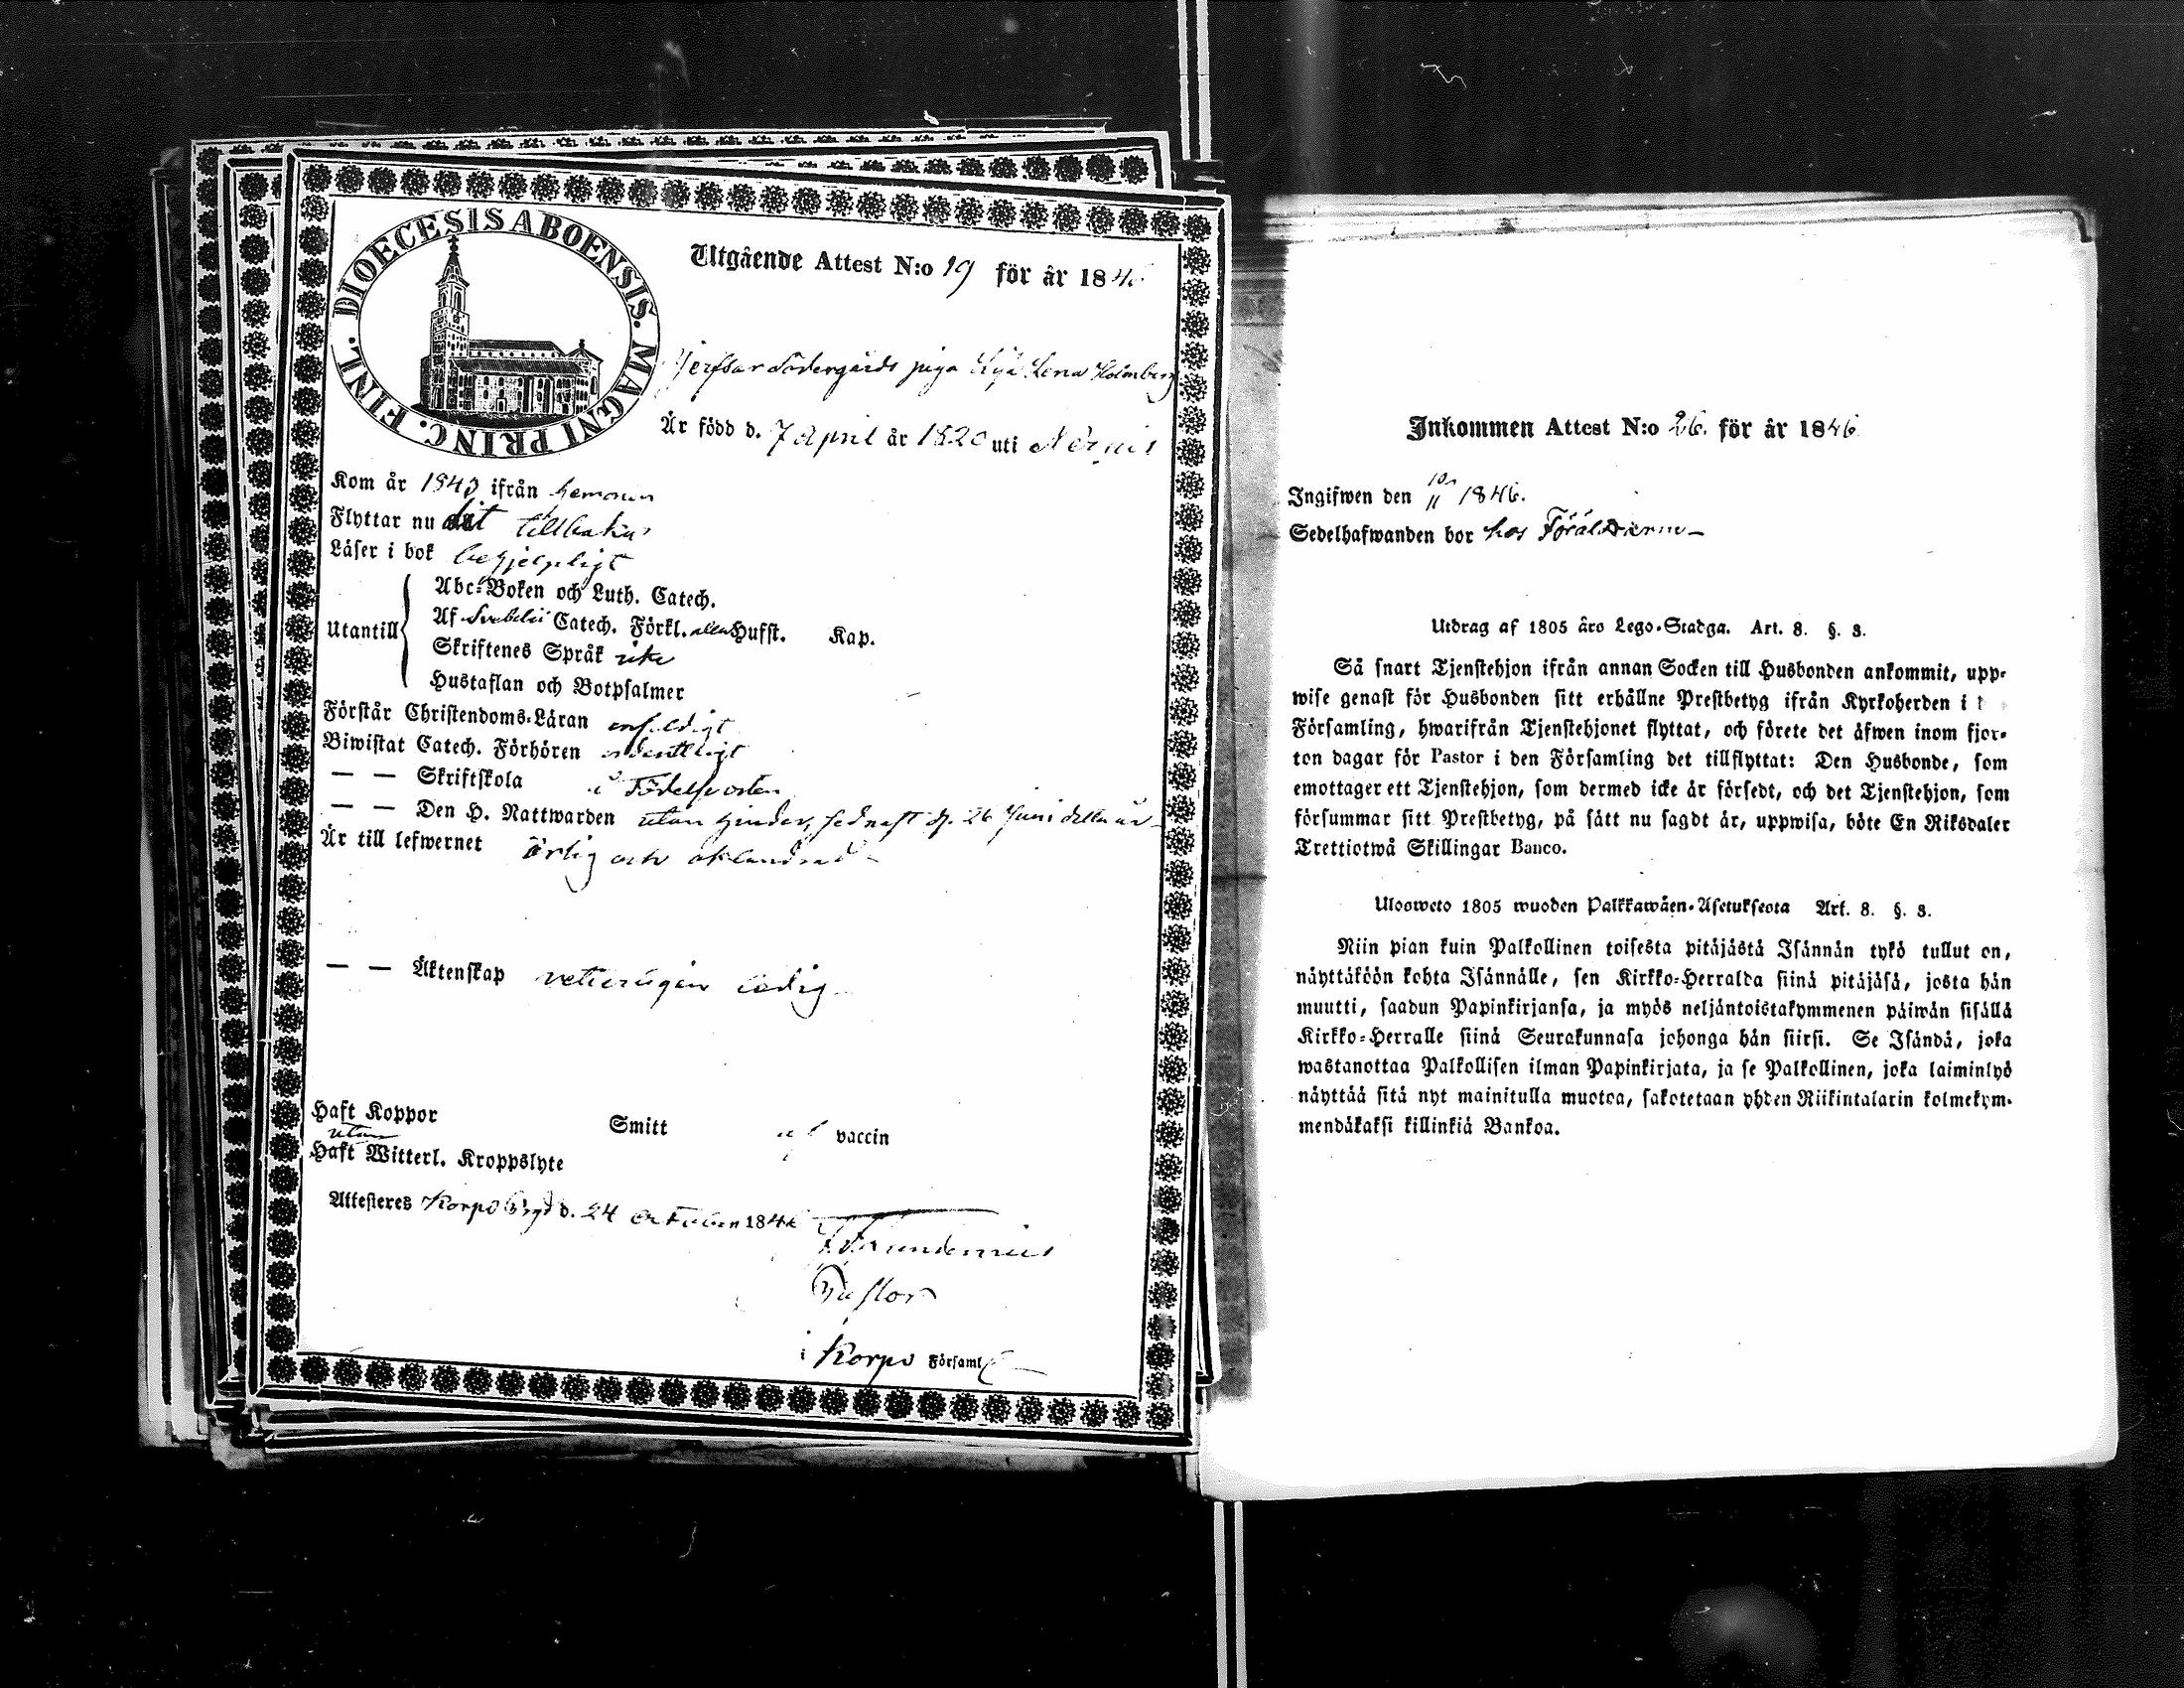 DIOECESIS ABOENSIS. MAGNI PRINC. FINL.
Utgående Attest N:o 19 för år 184
Södergårds piga Lena Holmberg
Är född d. 7 April år 1820 uti
Kom år 1843 ifrån
Flyttar nu dit tillbaka
Läser i bok behjelpligt
Utantill
Abc-Boken och Luth. Catech.
Af Svebelii Catech. Förkl. allen Hufst. Kap.
Skriftenes Språk icke
Hustaflan och Botpsalmer
Förstår Christendoms-Läran enfaldigt
Biwistat Catech. Förhören ordentligt
— — Skriftskola i Födelseorten
— — Den H. Nattwarden utan hinder, sednast d. 26 Juni detta år
Är till lefwernet ärlig och oklandrad
— — Äktenskap veterligen ledig
Haft Koppor Smitt af vaccin
utan
Haft Witterl. Kroppslyte
Attesteres Korpo d. 24 October 1846
Pastor
i Korpo Församl
Inkommen Attest N:o 26. för år 1846
Ingifwen den 10/11 1846.
Sedelhafwanden bor hos Föräldrarne
Utdrag af 1805 års Lego-Stadga. Art. 8. §. 3.
Så snart Tjenstehjon ifrån annan Socken till Husbonden ankommit, upp-
wise genast för Husbonden sitt erhållne Prestbetyg ifrån Kyrkoherden i
Församling, hwarifrån Tjenstehjonet flyttat, och förete det äfwen inom fjor-
ton dagar för Pastor i den Församling det tillflyttat: Den Husbonde, som
emottager ett Tjenstehjon, som dermed icke är försedt, och det Tjenstehjon, som
försummar sitt Prestbetyg, på sätt nu sagdt är, uppwisa, böte En Riksdaler
Trettiotwå Skillingar Banco.
Uloswето 1805 wuoden Palkkawäen-Asetuksesta Art. 8. §. 3.
Niin pian kuin Palkollinen toisesta pitäjästä Isännän tykö tullut on,
näyttäköön kohta Isännälle, sen Kirkko-Herralda siinä pitäjäsä, josta hän
muutti, saadun Papinkirjansa, ja myös neljäntoistakymmenen päiwän sisällä
Kirkko-Herralle siinä Seurakunnasa johonga hän siirsi. Se Isändä, joka
wastanottaa Palkollisen ilman Papinkirjata, ja se Palkollinen, joka laiminlyö
näyttää sitä nyt mainitulla muotoa, sakotetaan yhden Riikintalarin kolmekym-
mendäkaksi killinkiä Bankoa.